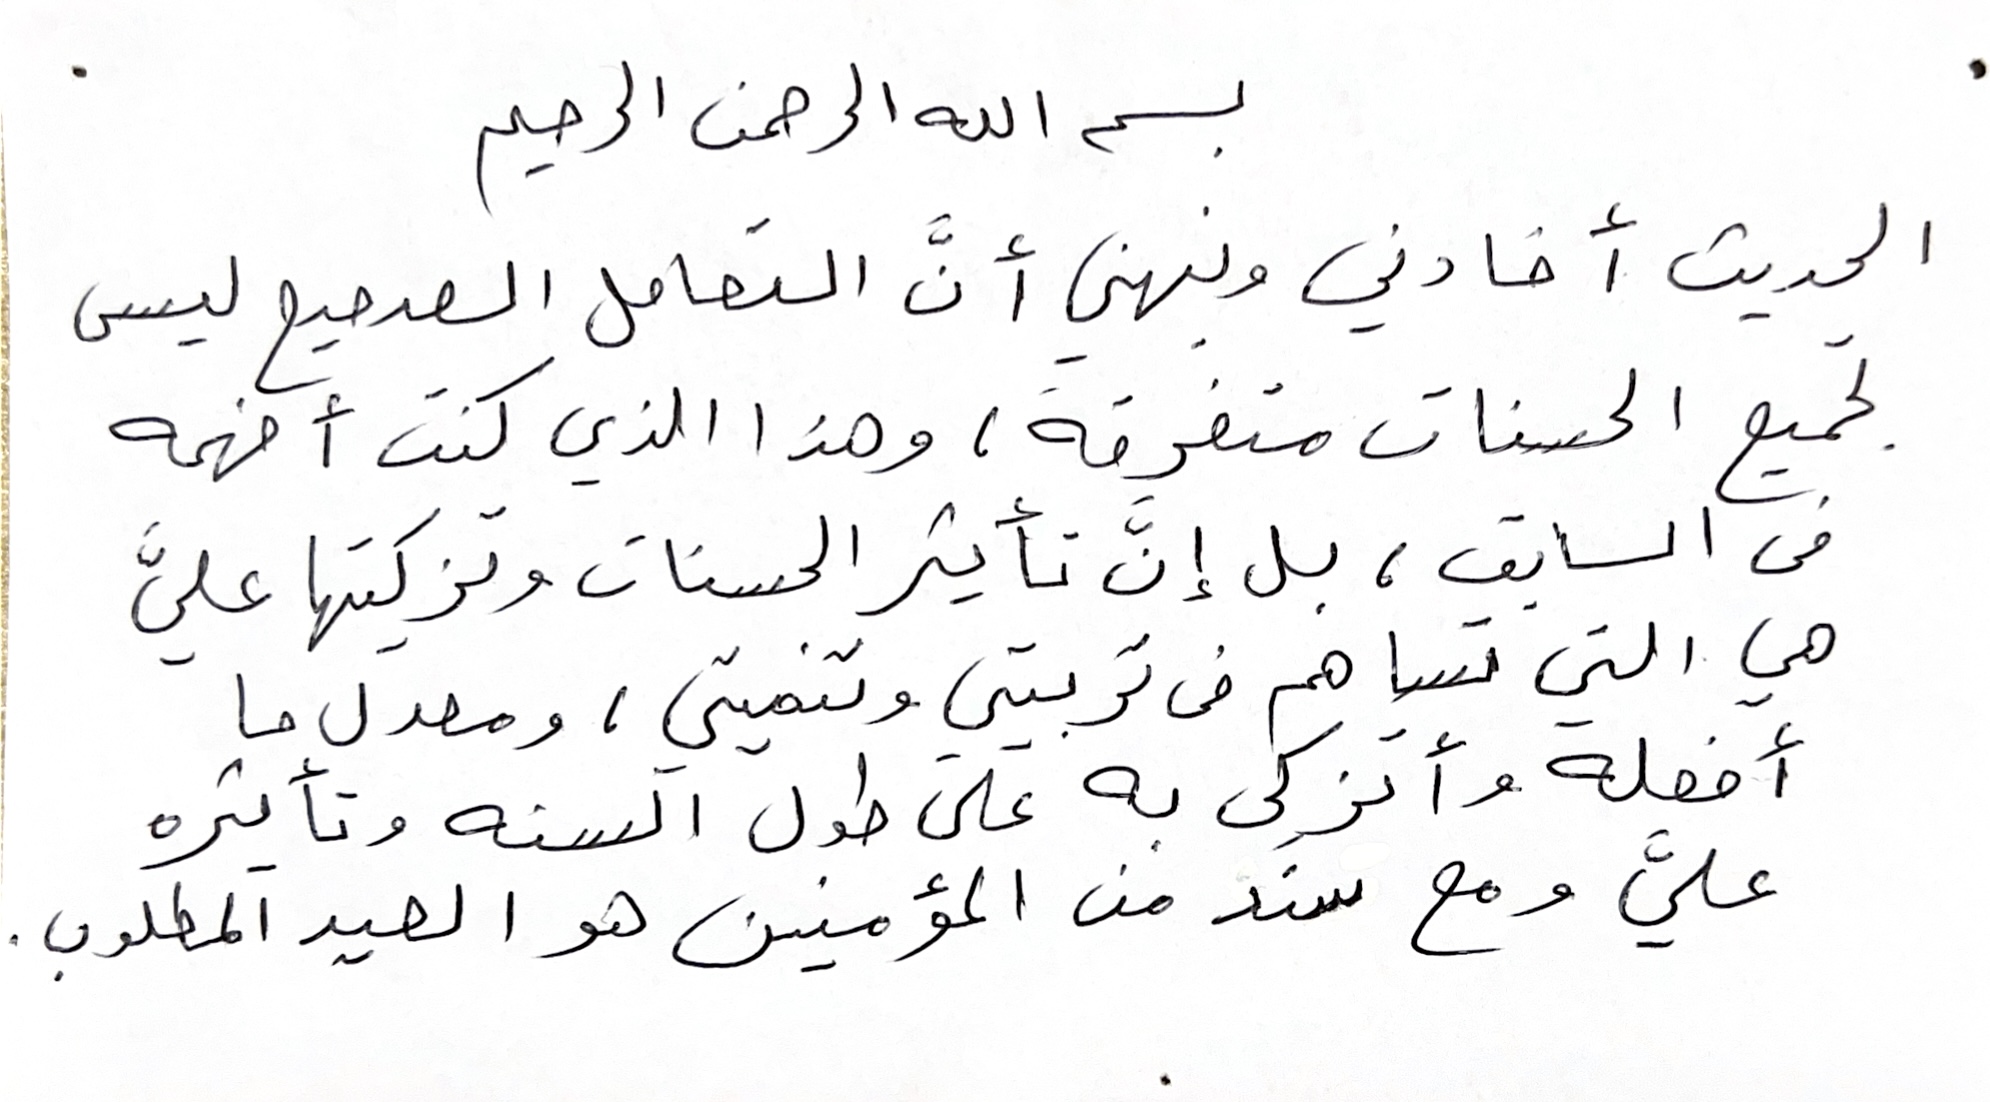 بسم الله الرحمن الرحيم
الحديث أفادني ونبهني أنَّ التعامل الصحيح ليس
تجميع الحسنات متفرقة، وهذا الذي كنت أفهمه
في السابق، بل إنَّ تأثير الحسنات وتزكيتها عليَّ
هي التي تساهم في تربيتي وتنميتي، ومعدل ما
أفعله وأتزكى به على طول السنه وتأثيره
عليَّ ومع سند من المؤمنين هو الصيد المطلوب.